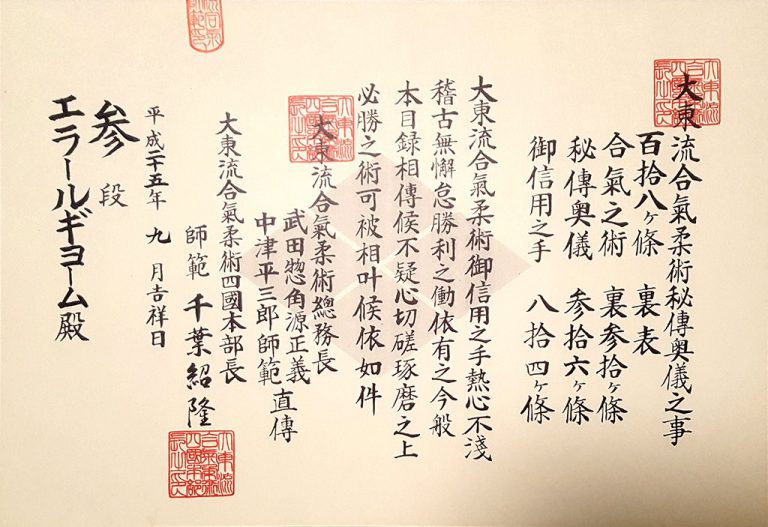 大東流合氣柔術秘傳奥儀之事
百拾八ヶ條 裏表
合氣之術 裏参拾ヶ條
秘傳奥儀 参拾六ヶ條
御信用之手 八拾四ヶ條
大東流合氣柔術御信用之手熱心不淺
稽古無懈怠勝利之働依有之今般
本目録相傳候不疑心切磋琢磨之上
必勝之術可被相叶候依如件
大東流合氣柔術總務長
武田惣角源正義
中津平三郎師範直傳
大東流合氣柔術四國本部長
師範 千葉紹隆
平成二十五年 九 月吉祥日
参 段
エラールギヨーム殿